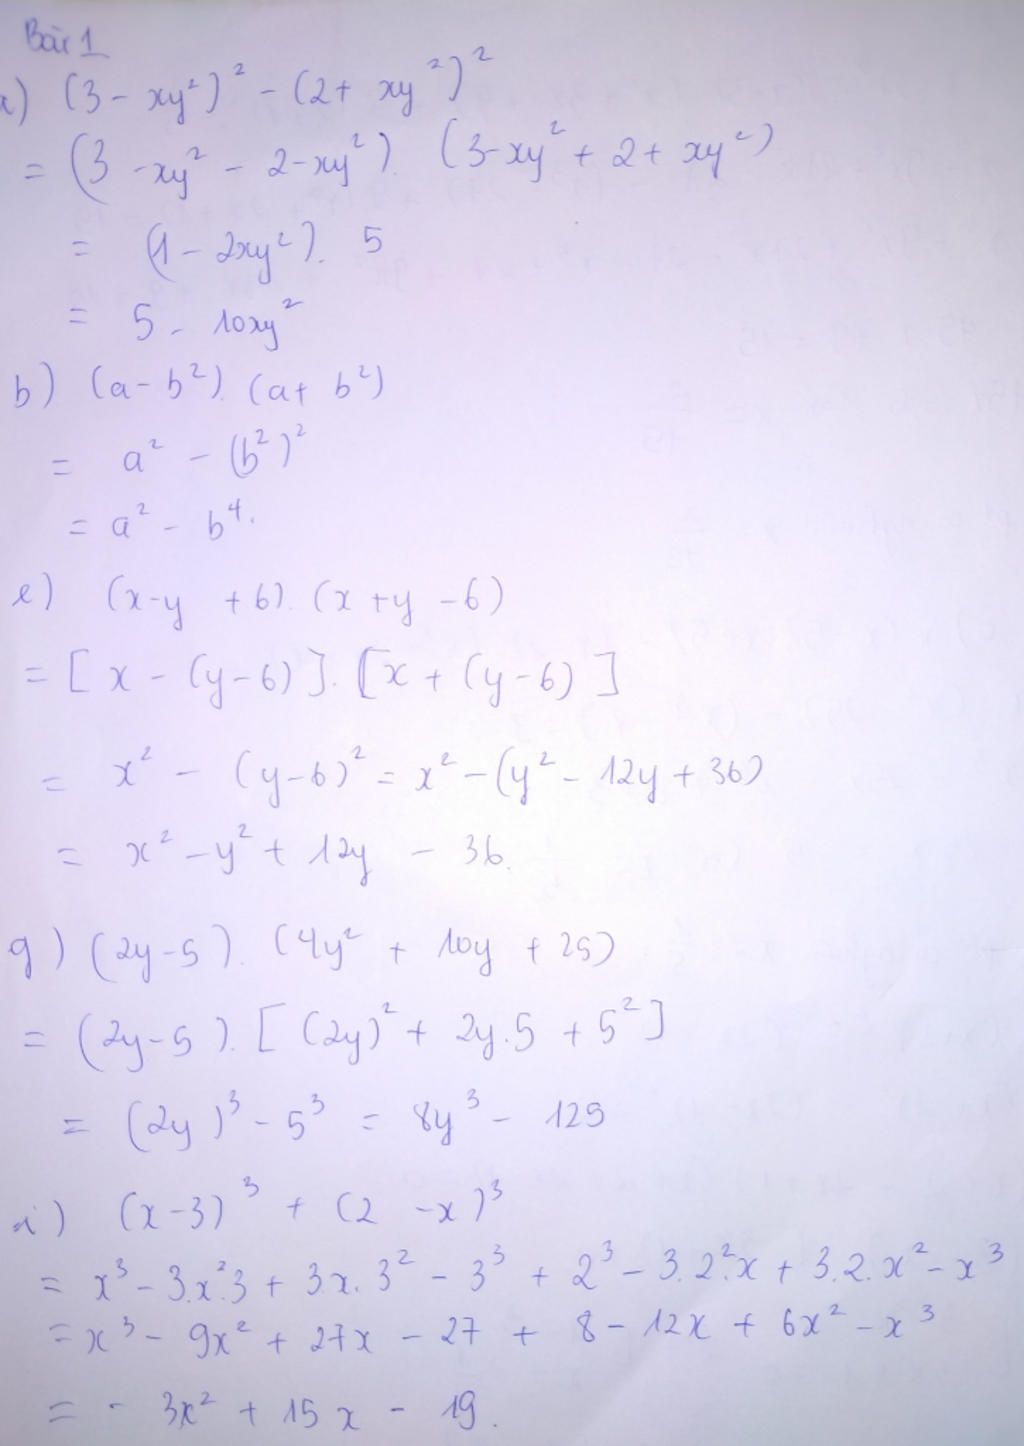 Bài 1
a) (3 - xy²)² - (2 + xy²)²
= (3 - xy² - 2 - xy²). (3 - xy² + 2 + xy²)
= (1 - 2xy²). 5
= 5 - 10xy²
b) (a - b²). (a + b²)
= a² - (b²)²
= a² - b⁴.
e) (x - y + 6). (x + y - 6)
= [x - (y - 6)]. [x + (y - 6)]
= x² - (y - 6)² = x² - (y² - 12y + 36)
= x² - y² + 12y - 36.
g) (2y - 5). (4y² + 10y + 25)
= (2y - 5). [(2y)² + 2y.5 + 5²]
= (2y)³ - 5³ = 8y³ - 125
i) (x - 3)³ + (2 - x)³
= x³ - 3.x².3 + 3.x.3² - 3³ + 2³ - 3.2².x + 3.2.x² - x³
= x³ - 9x² + 27x - 27 + 8 - 12x + 6x² - x³
= - 3x² + 15x - 19.